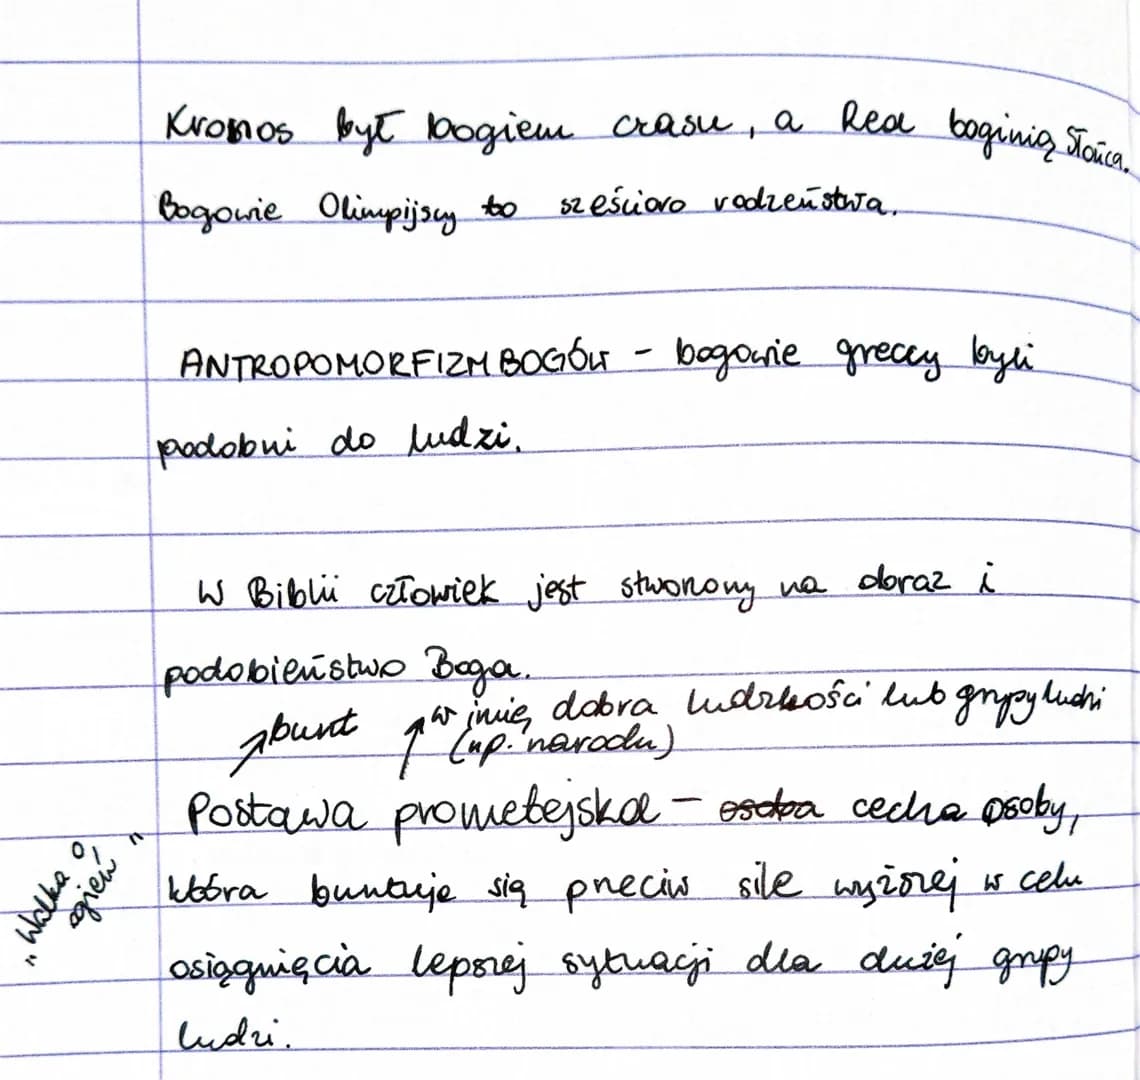 Kronos był bogiem czasu, a Rea boginią Słońca.
Bogowie Olimpijscy to sześcioro rodzeństwa.
ANTROPOMORFIZM BOGÓW - bogowie greccy byli
podobni do ludzi.
W Biblii człowiek jest stworzony na obraz i
podobieństwo Boga.
↗bunt ↗w imię dobra ludzkości lub grupy ludzi
(np. narodu)
Postawa prometejska - osoba cecha osoby,
która buntuje się przeciw sile wyższej w celu
osiągnięcia lepszej sytuacji dla dużej grupy
ludzi.
"Walka o
ogień"